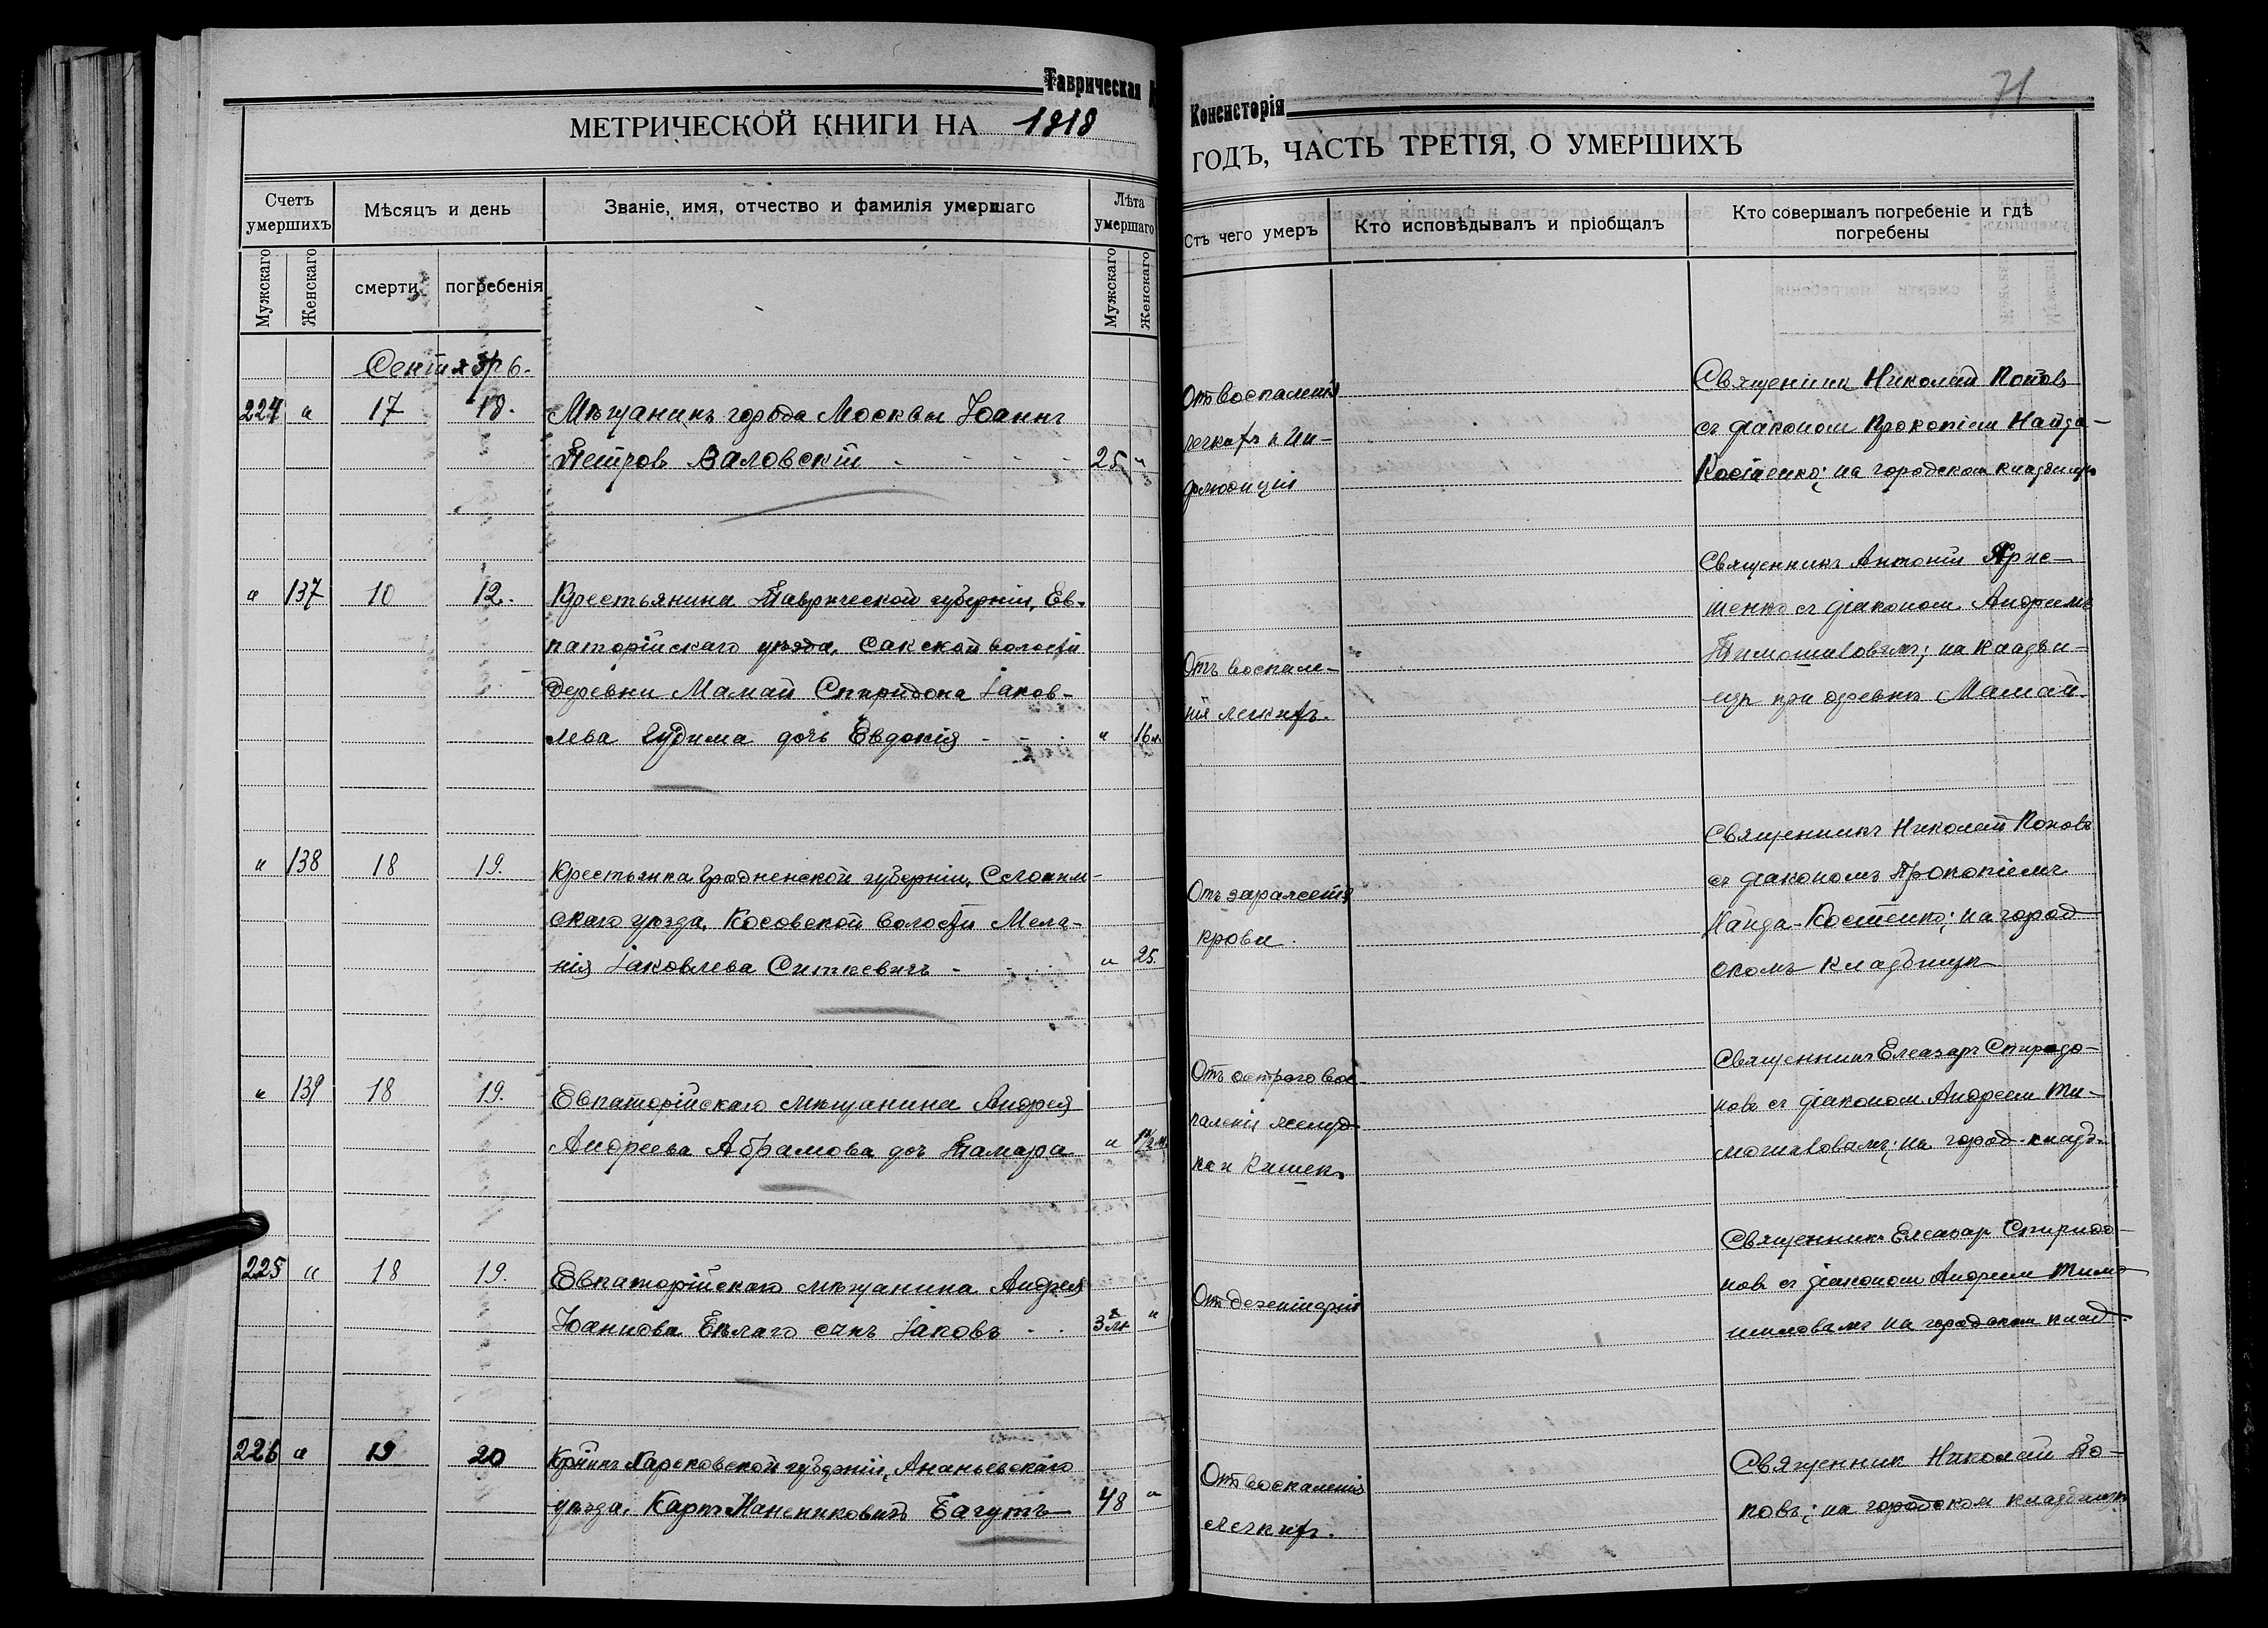 Таврическая
Консисторія
71
МЕТРИЧЕСКОЙ КНИГИ НА 1918
ГОДЪ, ЧАСТЬ ТРЕТІЯ, О УМЕРШИХЪ
Счетъ умершихъ
Мѣсяцъ и день
Званіе, имя, отчество и фамилія умершаго
Лѣта умершаго
Мужскаго
Женскаго
смерти
погребенія
Мужскаго
Женскаго
Отъ чего умеръ
Кто исповѣдывалъ и пріобщалъ
Кто совершалъ погребеніе и гдѣ
погребены
Сентябрь.
224 " 17 18. Мѣщанинъ города Москвы Іоаннъ
Петров Валовскій 25 "
От воспаленія
легкихъ и ин-
флюэнціи
Священник Николай Попов
съ діаконом Прокопіем Найда-
Костенко; на городском кладбищѣ
" 137 10 12. Крестьянина Таврической губерніи, Ев-
паторійскаго уѣзда, Сакской волости
деревни Мамай Спиридона Іаков-
лева Гудима дочь Евдокія " 16
Отъ воспале-
нія легкихъ.
Священникъ Антоній
съ діаконом Андреемъ
Тимошиловымъ; на кладби-
щѣ при деревнѣ Мамай.
" 138 18 19. Крестьянка Гродненской губерніи, Слоним-
скаго уѣзда, Косовской волости Мела-
нія Іаковлева Ситкевичъ " 25
Отъ зараженія
крови.
Священникъ Николай Поповъ
съ діакономъ Прокопіемъ
Найда-Костенко; на город
скомъ кладбищѣ
" 139 18 19. Евпаторійскаго мѣщанина Андрея
Андреева Абрамова дочь Тамара "
Отъ остраго вос-
паленія желуд-
ка и кишек.
Священникъ Елеазаръ Спиридо-
нов съ діаконом Андреем Ти-
мошиловымъ; на город. кладб.
225 " 18 19. Евпаторійскаго мѣщанина Андрея
Іоаннова Бѣлаго сынъ Іаковъ 3 "
От дезентеріи
Священникъ Елеазар Спиридо-
нов съ діаконом Андреем Тимо-
шиловымъ на городском клад.
226 " 19 20 Кр-нинъ Харьковской губерніи, Ананьевскаго
уѣзда, Карпъ Багутъ 48 "
От воспаленія
легкихъ.
Священник Николай По-
повъ; на городском кладбищѣ